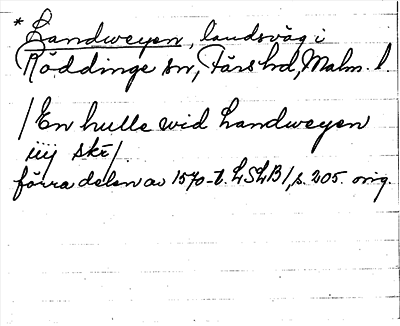 *Landweyen, landsväg i
Röddinge sn, Färs hd, Malm. l.
/En hulle wid Landweyen
iiij skr/
förra delen av 1570-t. LSLB 1, s. 205. orig.